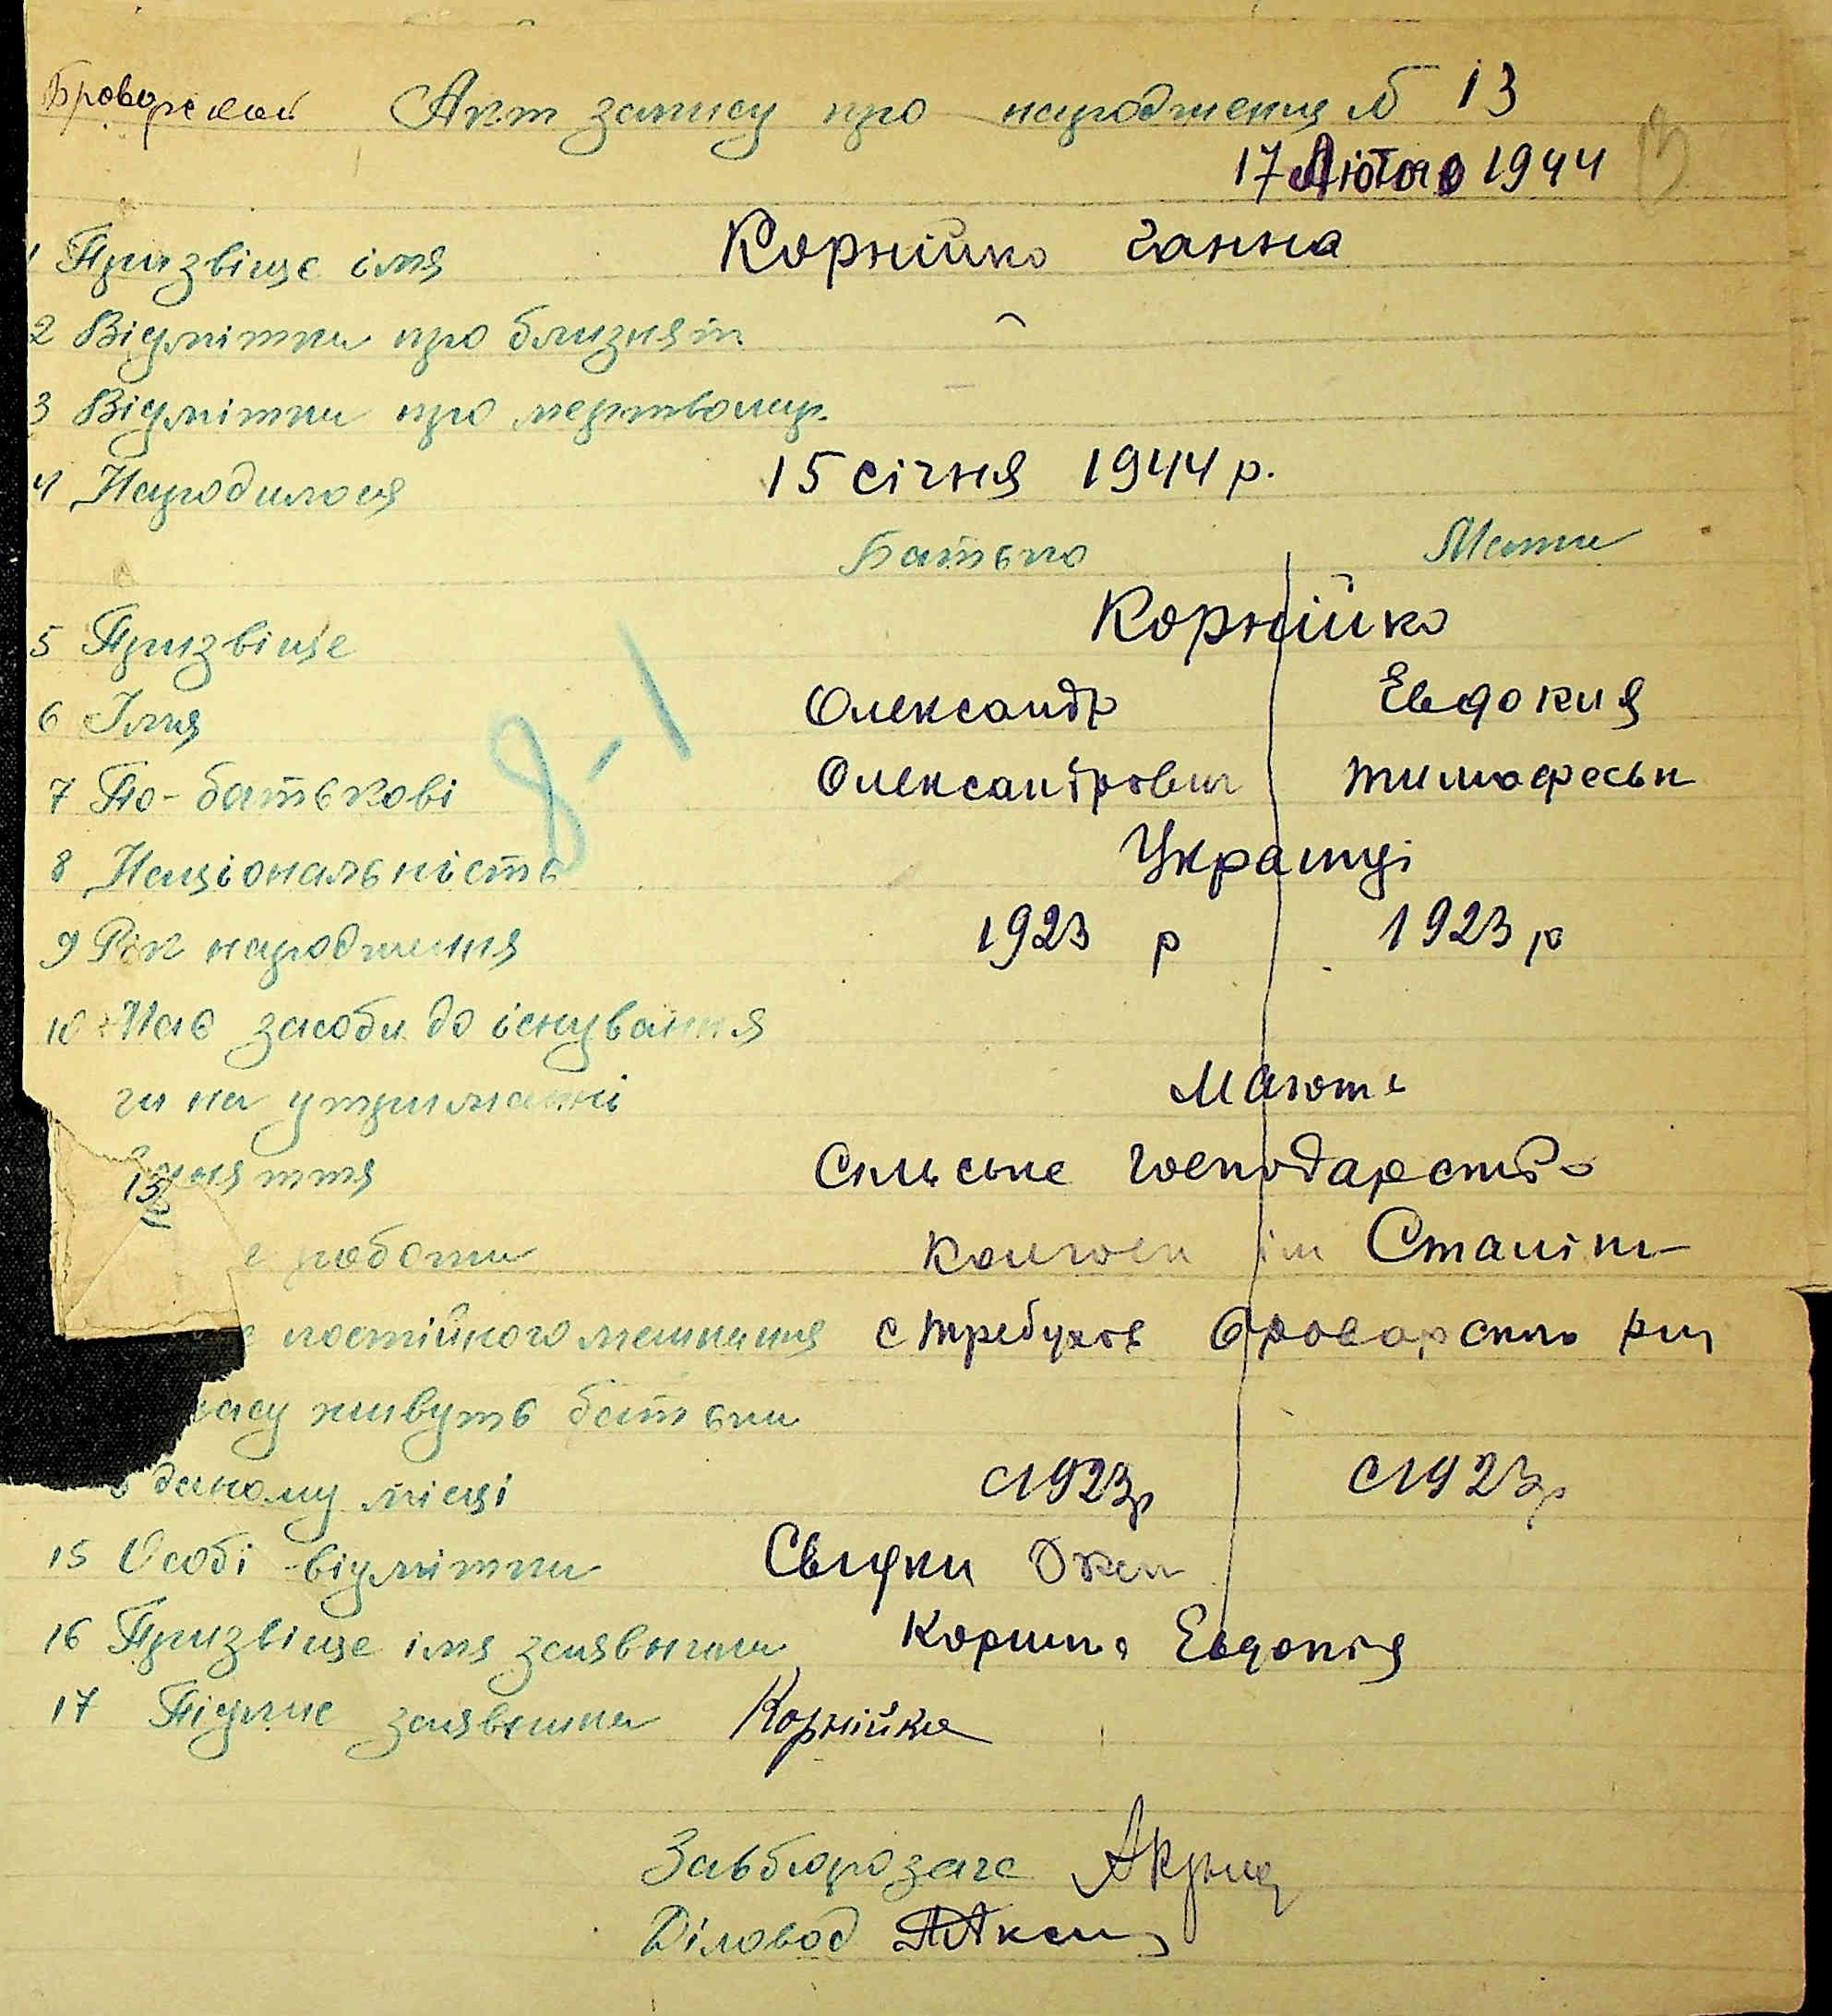 Броварский Акт запису про народження № 13
17 Лютого 1944
1 Призвіще імя Корнійко Ганна
2 Відмітки про близнят -
3 Відмітки про мертвонар. -
4 Народилося 15 січня 1944 р.
Батько Мати
5 Призвіще Корнійко
6 Імя Олександр Евдокия
7 По-батькові Олександрович Тимофеевн
8 Національність Українці
9 Рік народження 1923 р 1923 р
10 Має засоби до існування
чи на утриманні Мають
заняття Сільське господарство
13
е роботи Колгосп ім Сталіна
е постійного мешкання с Требухов Броварского рну
часу живуть батьки
в даному місці с 1923р с 1923р
15 Особі-відмітки Свидки
16 Призвіще імя заявника Корнійко Евдокія
17 Підпис заявника Корнійко
8-1
Завбюро загс
Діловод